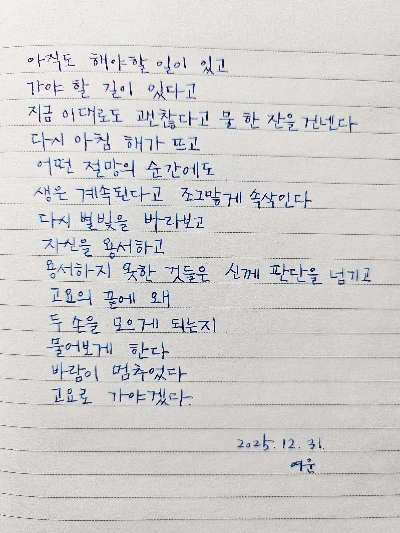 아직도 해야할 일이 있고
가야 할 길이 있다고
지금 이대로도 괜찮다고 물 한 잔을 건넨다
다시 아침 해가 뜨고
어떤 절망의 순간에도
생은 계속된다고 조그맣게 속삭인다
다시 별빛을 바라보고
자신을 용서하고
용서하지 못한 것들은 신께 판단을 넘기고
고요의 끝에 왜
두 손을 모으게 되는지
물어보게 한다
바람이 멈추었다
고요로 가야겠다.
2025. 12. 31.
여운